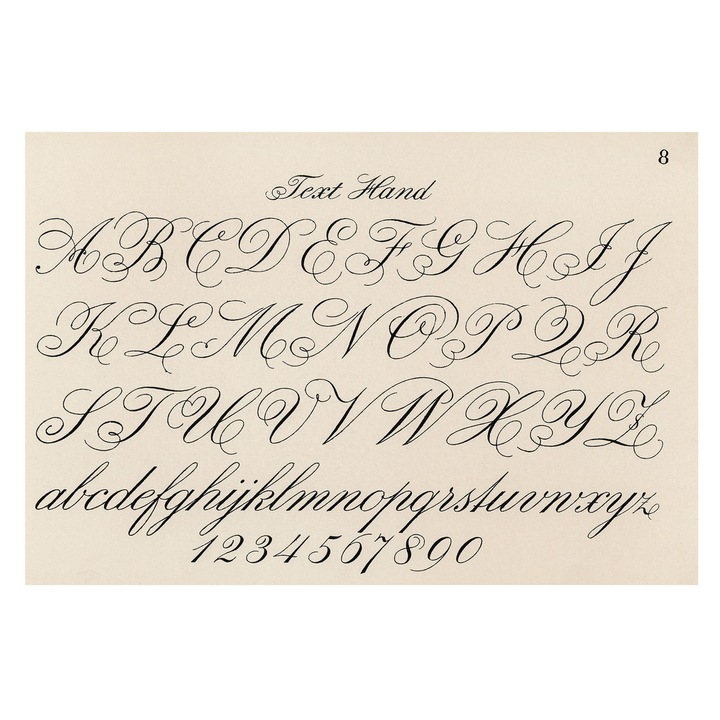 8
Text Hand
A B C D E F G H I J
K L M N O P Q R
S T U V W X Y Z
abcdefghijklmnopqrstuvwxyz
1 2 3 4 5 6 7 8 9 0